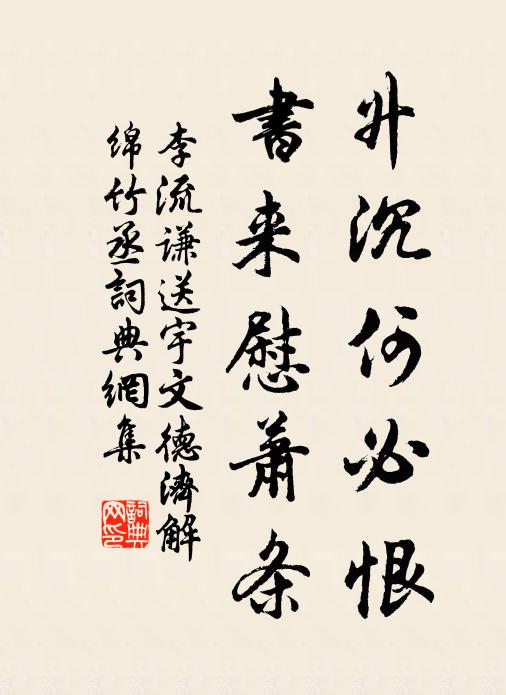 升沉何必恨
書来慰蕭条
李流谦送宇文德濟解
绵竹丞詞典網集
詞典网印